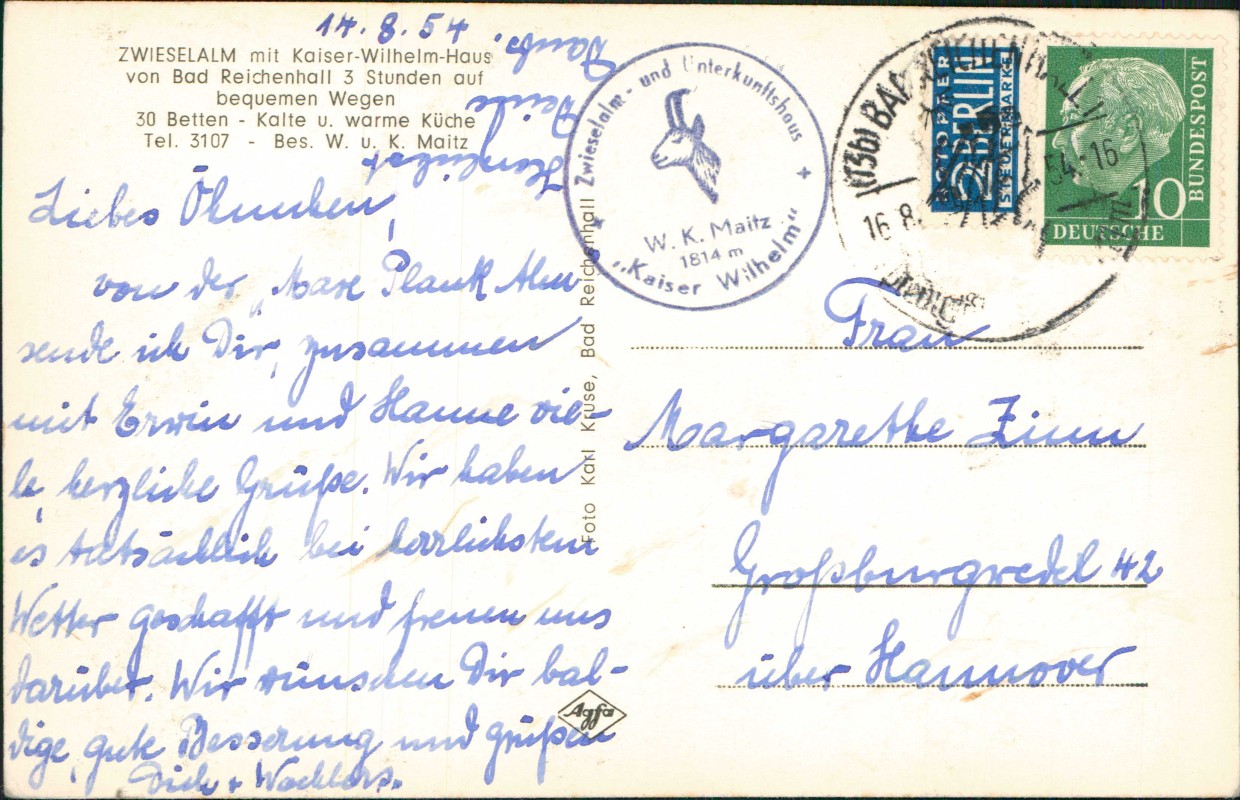 14.8.54
ZWIESELALM mit Kaiser-Wilhelm-Haus
von Bad Reichenhall 3 Stunden auf
bequemen Wegen
30 Betten - Kalte u. warme Küche
Tel. 3107 - Bes. W. u. K. Maitz
Liebes Ömchen,
von der "Maxe Plank Alm"
sende ich Dir, zusammen
mit Erwin und Hanne vie-
le, herzliche Grüße. Wir haben
es tatsächlich bei herrlichstem
Wetter geschafft und freuen uns
darüber. Wir wünschen Dir bal-
dige, gute Besserung und grüßen
Dich
Deine
Foto Karl Kruse, Bad Reichenhall
Agfa
Zwieselalm- und Unterkunftshaus
W. K. Maitz
1814 m
"Kaiser Wilhelm"
(13b) BAD REICHENHALL
16.8.54-16
NOTOPFER
2 BERLIN
STEUERMARKE
10
DEUTSCHE
BUNDESPOST
Frau
Margarethe Zinn
Großburgwedel 42
über Hannover